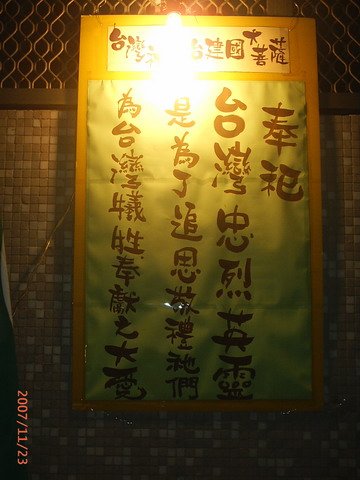 台灣建國大菩薩
奉祀
台灣忠烈英靈
是為了追思敬禮祂們
為台灣犧牲奉獻之大愛
2007/11/23